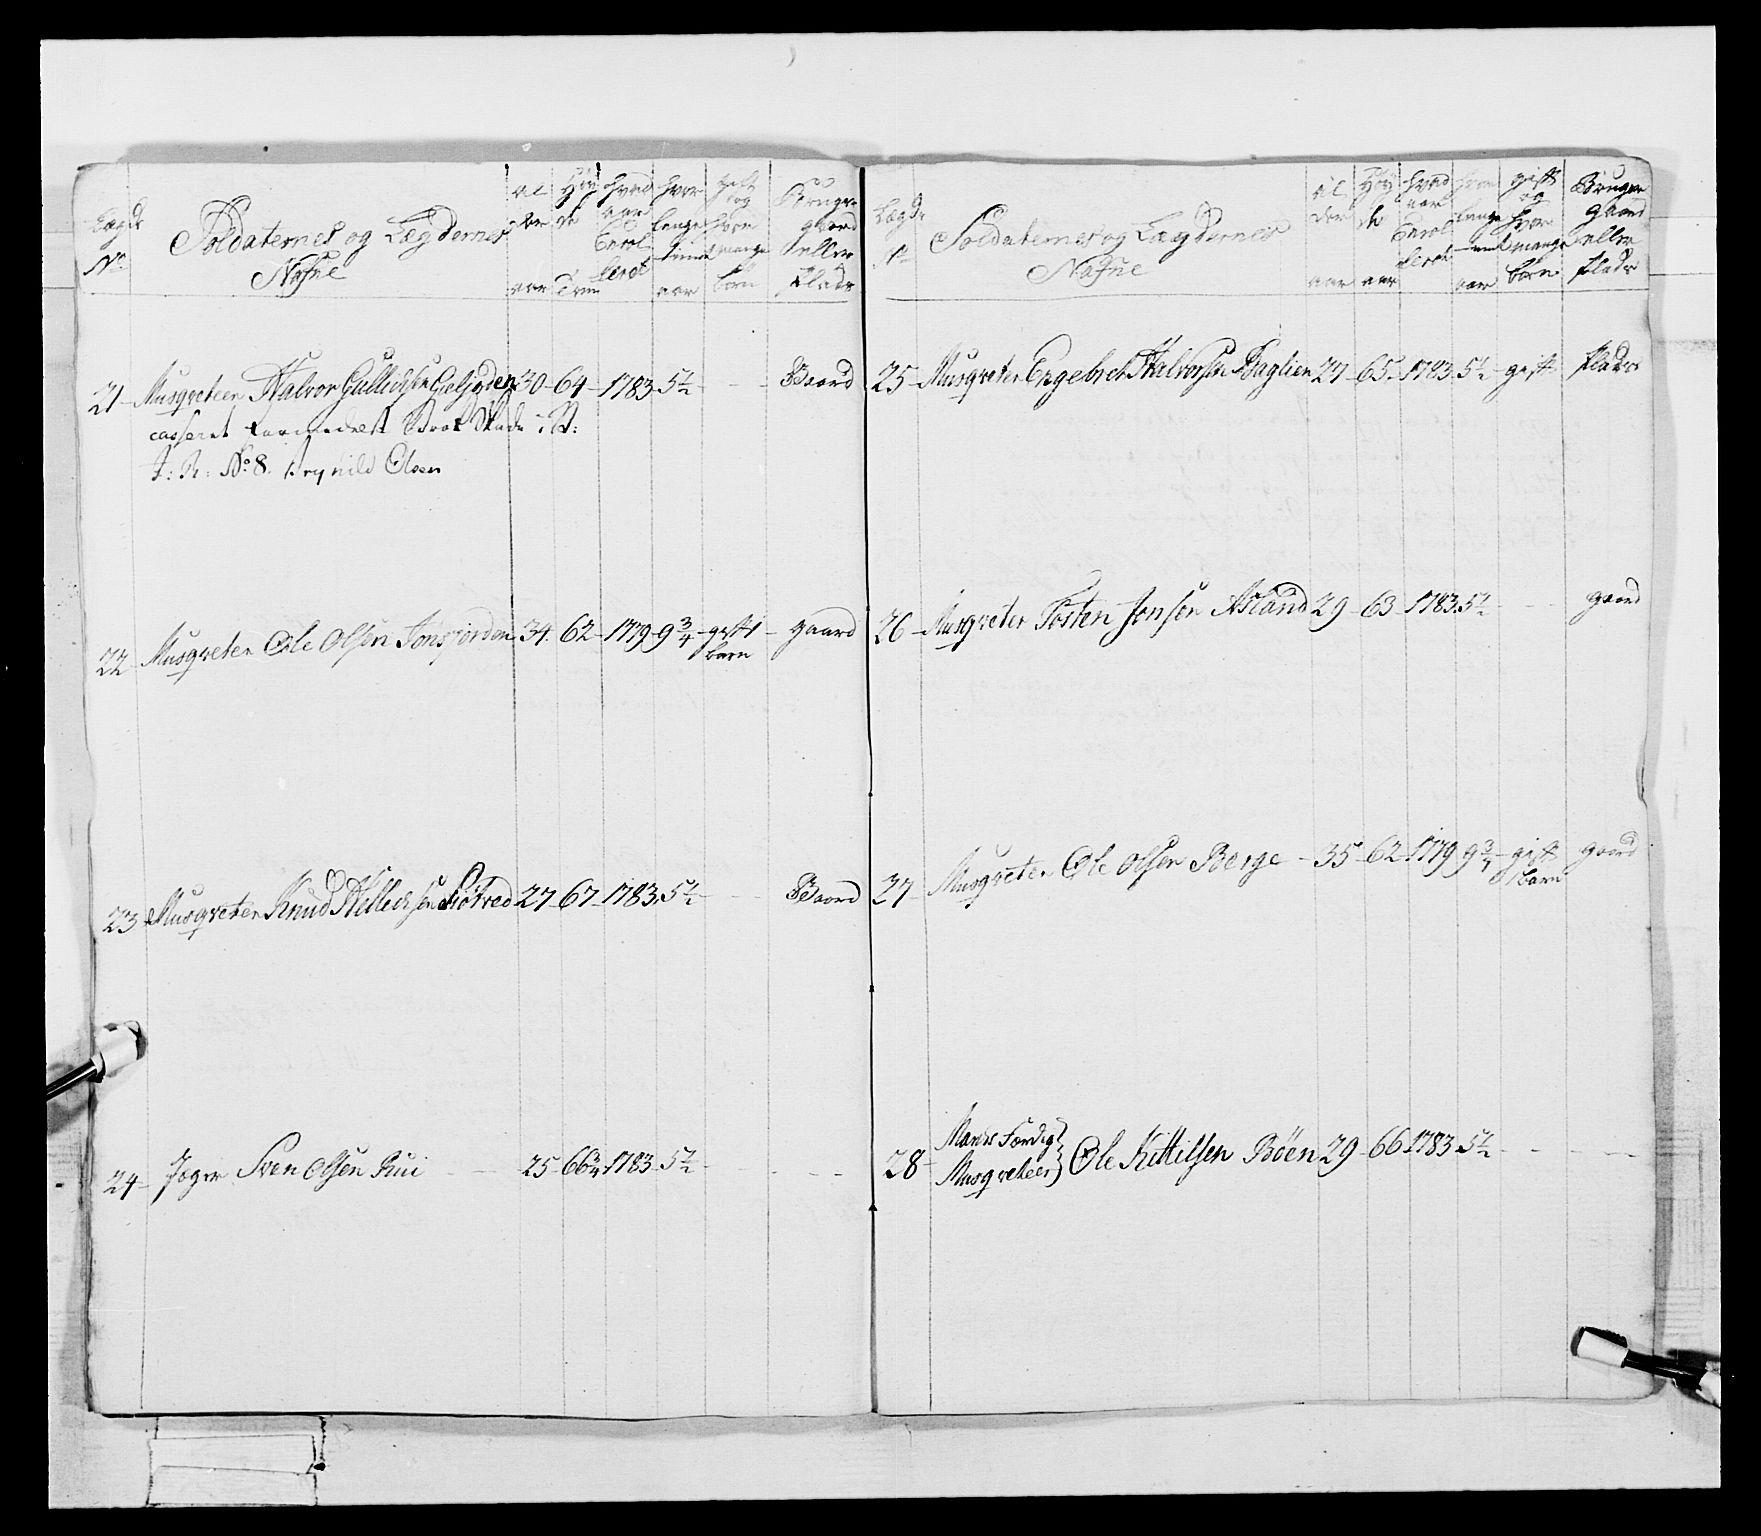 Lægds No
Soldaternes og Lægdernes Nafne
al der aar
Høy de Tom
hvad aar Enrol leret
hvor længe tient aar
gift og hvor mange børn
Bruger gaard eller Plads
21 - Musqveteer Halvor Gullichsen 30 - 64 - 1783 5½ - - - Gaard
casseret formedelst Brok Skade i N:
J: R: No 8. Brynild Olsen
22 - Musqveteer Ole Olsen Jonsjorden 34. 62 - 1779 - 9¾ - gift 1 - gaard
barn
23 - Musqveteer Knud Hellechsen 27 - 67 - 1783. 5½ - - - Gaard
24 - Jæger Sven Olsen Rui - - 25 - 66¾ - 1783 - 5½ - - -
Lægds No
Soldaternes og Lægdernes Nafne
al der aar
Høy de aar
hvad aar Enrol leret
hvor længe tient aar
gift og hvor mange børn
Bruger gaard eller Plads
25 - Musqveter Engebret Halvorsen Baglien 27 - 65 - 1783 - 5½ - gift Plads
26 - Musqveter Tosten Jonsen Asland 29 - 63 - 1783. 5½ - - - gaard
27 - Musqveter Ole Olsen Berge - 35 - 62 - 1779 9¾ - gift gaard
1 barn
28 - Mands Færdig
Musqveteer } Ole Kittilsen Bøen 29 - 66 - 1783 - 5½ - - -